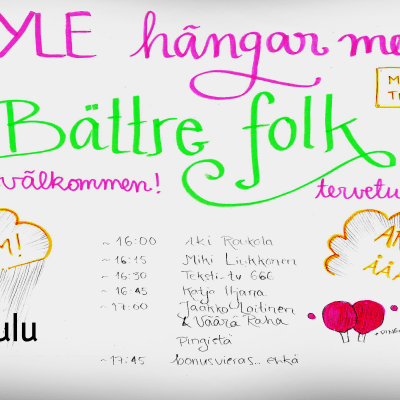 YLE hängar me
M
T
Bättre folk
välkommen!
tervetu
M!
~ 16:00 Aki Roukala
~ 16:15 Miki Liukkonen
~ 16:30 Teksti-tv 666
~ 16:45 Katja
~ 17:00 Jaakko Laitinen
& Väärä Raha
Pingietä
~ 17:45 bonusvieras... ehkä
ÄÄ
ulu